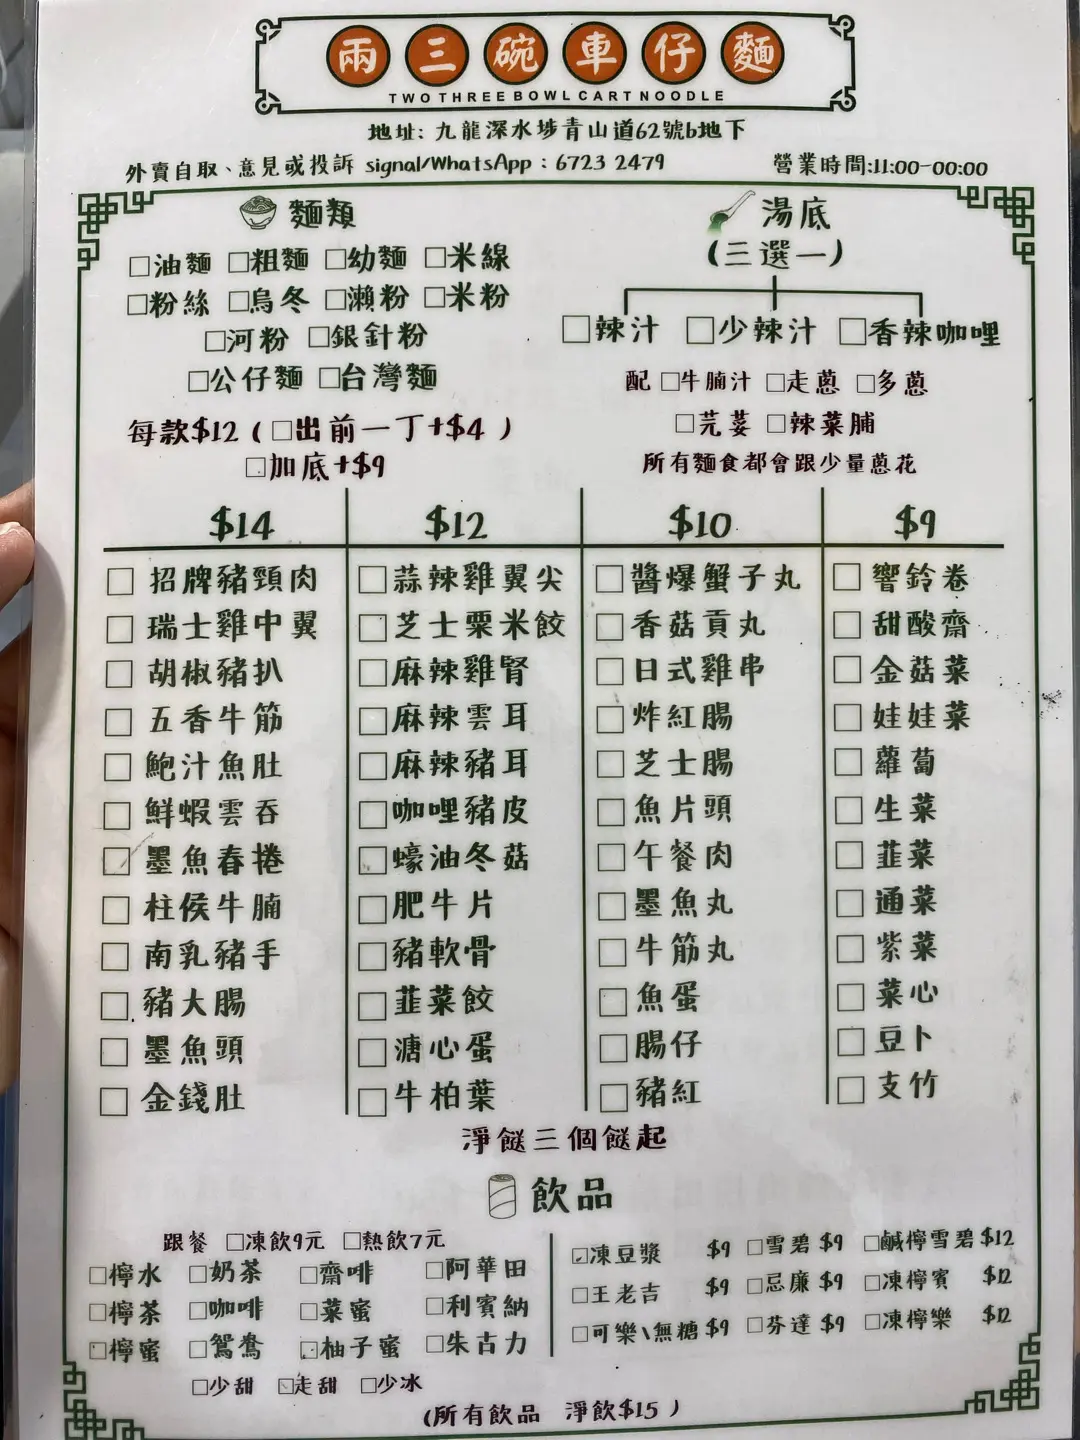 兩三碗車仔麵
TWO THREE BOWL CART NOODLE
地址: 九龍深水埗青山道62號b地下
外賣自取、意見或投訴 signal/WhatsApp : 6723 2479
營業時間:11:00-00:00
麵類
□油麵 □粗麵 □幼麵 □米線
□粉絲 □烏冬 □瀨粉 □米粉
□河粉 □銀針粉
□公仔麵 □台灣麵
每款$12 ( □出前一丁+$4 )
□加底+$9
湯底
(三選一)
□辣汁 □少辣汁 □香辣咖哩
配 □牛腩汁 □走蔥 □多蔥
□芫荽 □辣菜脯
所有麵食都會跟少量蔥花
$14
□ 招牌豬頸肉
□ 瑞士雞中翼
□ 胡椒豬扒
□ 五香牛筋
□ 鮑汁魚肚
□ 鮮蝦雲吞
□ 墨魚春捲
□ 柱侯牛腩
□ 南乳豬手
□ 豬大腸
□ 墨魚頭
□ 金錢肚
$12
□ 蒜辣雞翼尖
□ 芝士粟米餃
□ 麻辣雞腎
□ 麻辣雲耳
□ 麻辣豬耳
□ 咖哩豬皮
□ 蠔油冬菇
□ 肥牛片
□ 豬軟骨
□ 韮菜餃
□ 溏心蛋
□ 牛柏葉
$10
□ 醬爆蟹子丸
□ 香菇貢丸
□ 日式雞串
□ 炸紅腸
□ 芝士腸
□ 魚片頭
□ 午餐肉
□ 墨魚丸
□ 牛筋丸
□ 魚蛋
□ 腸仔
□ 豬紅
$9
□ 響鈴卷
□ 甜酸齋
□ 金菇菜
□ 娃娃菜
□ 蘿蔔
□ 生菜
□ 韮菜
□ 通菜
□ 紫菜
□ 菜心
□ 豆卜
□ 支竹
淨餸三個餸起
飲品
跟餐 □凍飲9元 □熱飲7元
□檸水 □奶茶 □齋啡 □阿華田
□檸茶 □咖啡 □菜蜜 □利賓納
□檸蜜 □鴛鴦 □柚子蜜 □朱古力
□少甜 □走甜 □少冰
□凍豆漿 $9 □雪碧 $9 □鹹檸雪碧 $12
□王老吉 $9 □忌廉 $9 □凍檸賓 $12
□可樂\無糖 $9 □芬達 $9 □凍檸樂 $12
(所有飲品 淨飲$15 )